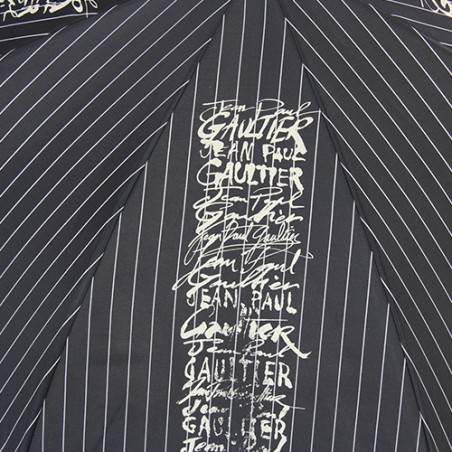 Jean Paul
GAULTIER
JEAN PAUL
GAULTIER
Jean Paul
Gaultier
Jean Paul Gaultier
Jean Paul
Gaultier
JEAN PAUL
GAULTIER
Jean Paul
GAULTIER
Jean
GAULTIER
Jean Paul